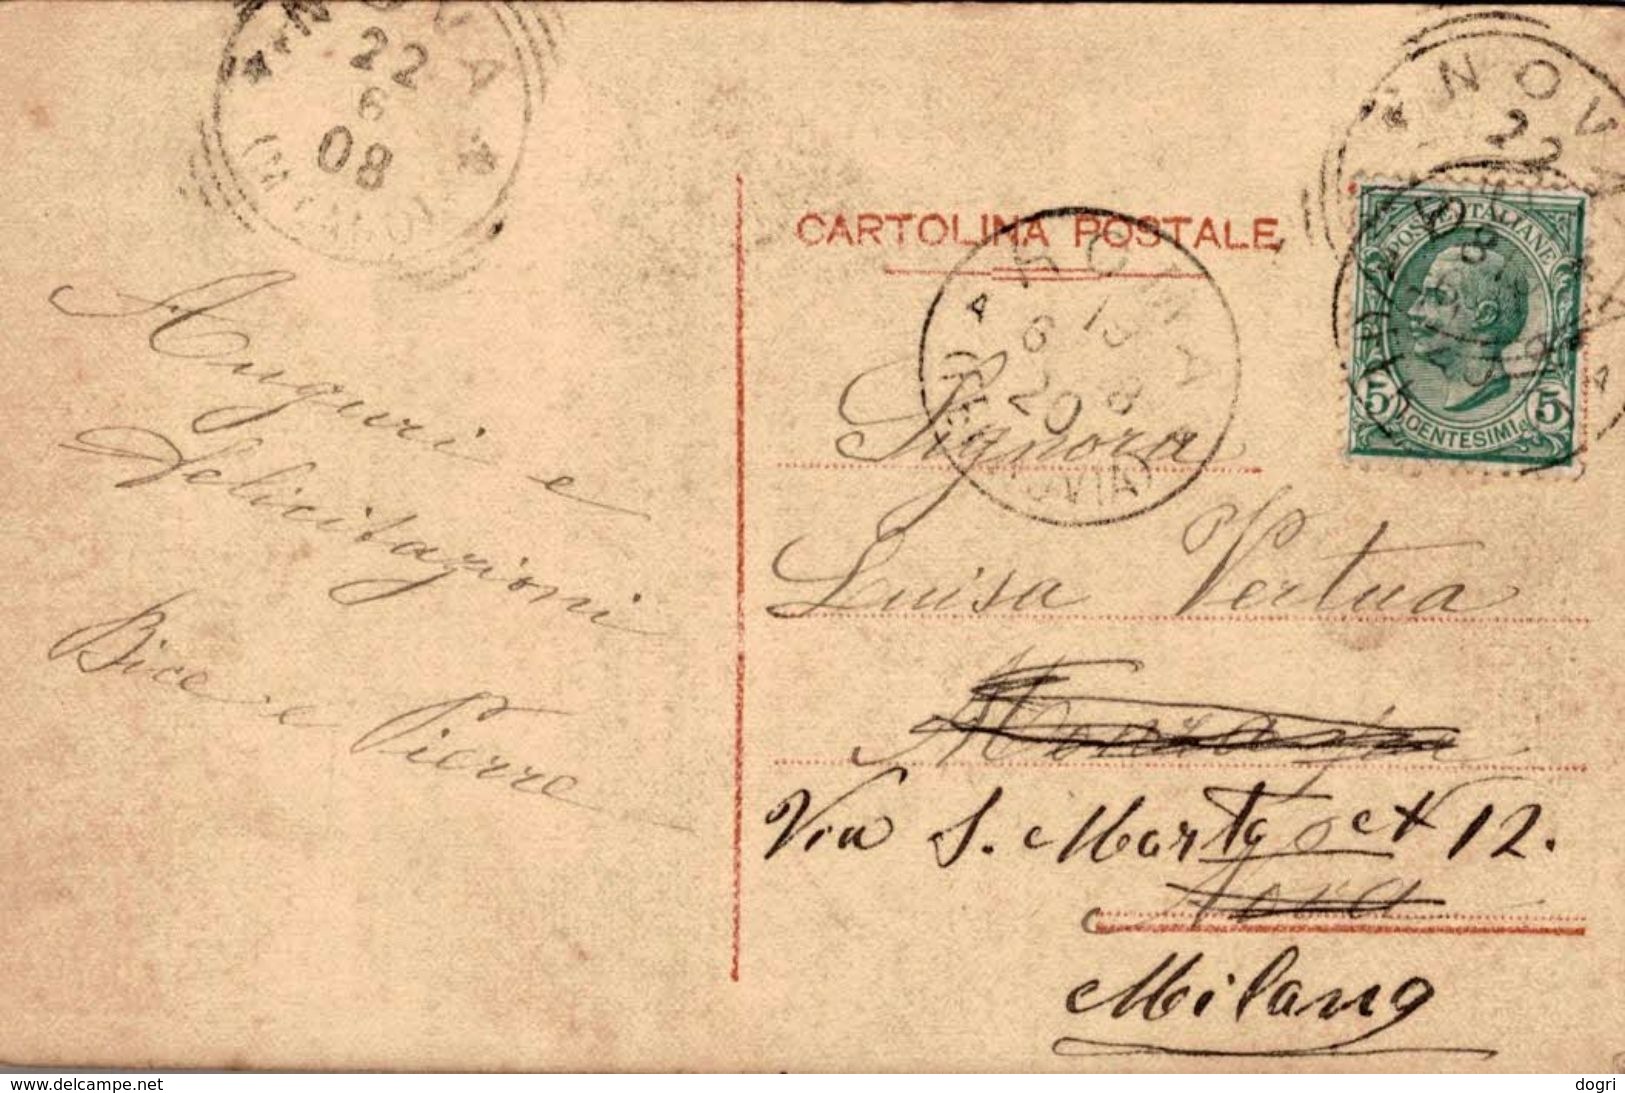 NOVA
22
6
08
(MILANO)
NOVA
22
CARTOLINA POSTALE
POSTE ITALIANE
5 CENTESIMI 5
ROMA
13
6 8
20
(FERROVIA)
Auguri e
felicitazioni
Bice e Pierre
Signora
Luisa Vertua
Via S. Marta N 12.
Nova
Milano
www.delcampe.net
dogri